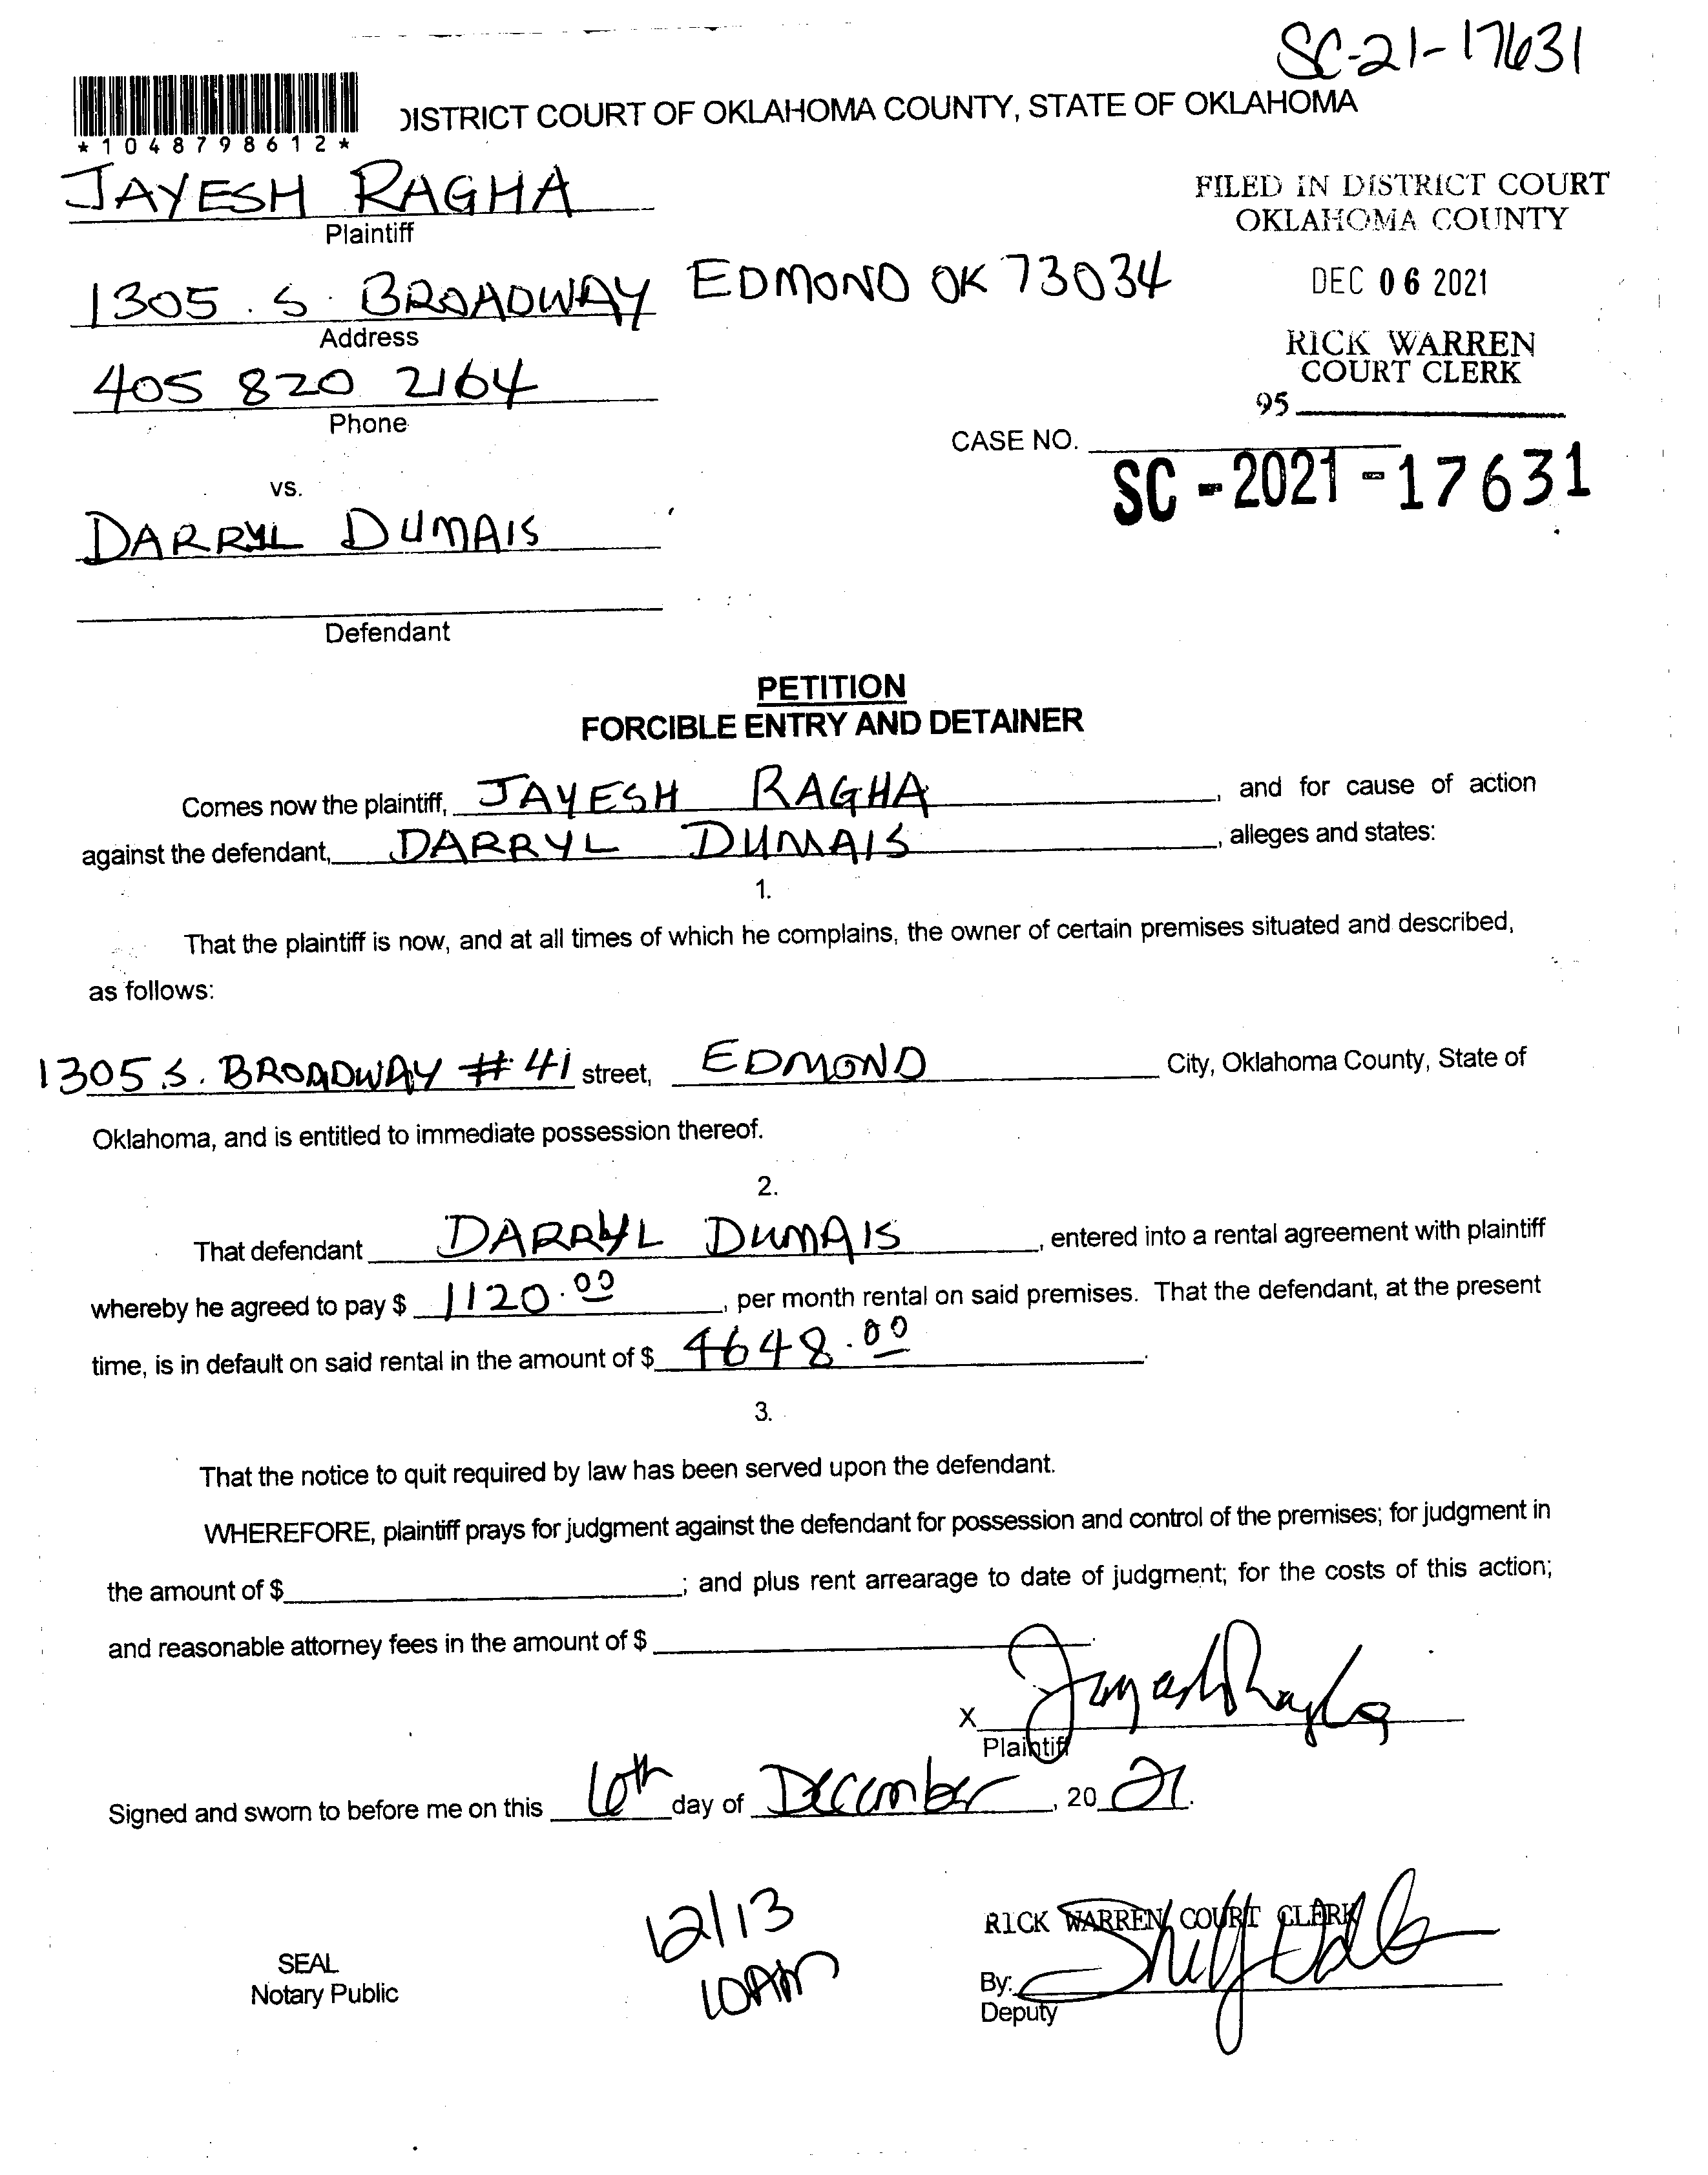 SC-21-17631
*1048798612*
DISTRICT COURT OF OKLAHOMA COUNTY, STATE OF OKLAHOMA
JAYESH RAGHA
Plaintiff
FILED IN DISTRICT COURT
OKLAHOMA COUNTY
1305. S. BROADWAY EDMOND OK 73034
Address
DEC 06 2021
405 820 2164
Phone
RICK WARREN
COURT CLERK
95
CASE NO.
SC-2021-17631
vs.
DARRYL DUMAIS
Defendant
PETITION
FORCIBLE ENTRY AND DETAINER
Comes now the plaintiff, JAYESH RAGHA, and for cause of action
against the defendant, DARRYL DUMAIS, alleges and states:
1.
That the plaintiff is now, and at all times of which he complains, the owner of certain premises situated and described,
as follows:
1305 S. BROADWAY # 41 street, EDMOND City, Oklahoma County, State of
Oklahoma, and is entitled to immediate possession thereof.
2.
That defendant DARRYL DUMAIS, entered into a rental agreement with plaintiff
whereby he agreed to pay $ 1120.00, per month rental on said premises. That the defendant, at the present
time, is in default on said rental in the amount of $ 4648.00.
3.
That the notice to quit required by law has been served upon the defendant.
WHEREFORE, plaintiff prays for judgment against the defendant for possession and control of the premises; for judgment in
the amount of $; and plus rent arrearage to date of judgment; for the costs of this action;
and reasonable attorney fees in the amount of $
X Jayesh Ragha
Plaintiff
Signed and sworn to before me on this 6th day of December, 20 21.
12/13
10AM
SEAL
Notary Public
RICK WARREN COURT CLERK
By:
Deputy